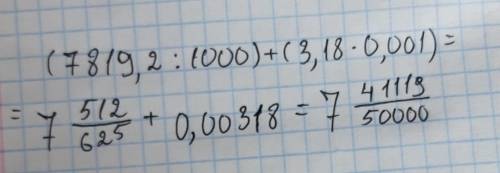 (7819,2 : 1000) + (3,18 · 0,001) =
= 7 512/625 + 0,00318 = 7 41119/50000